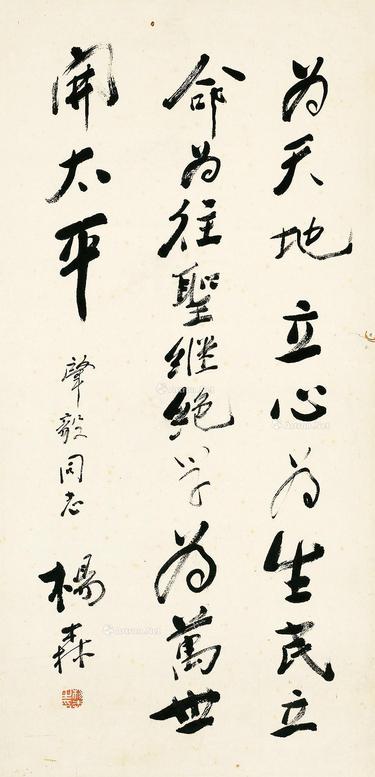 为天地立心为生民立
命为往聖继絶学为萬世
開太平
肇毅同志
楊森